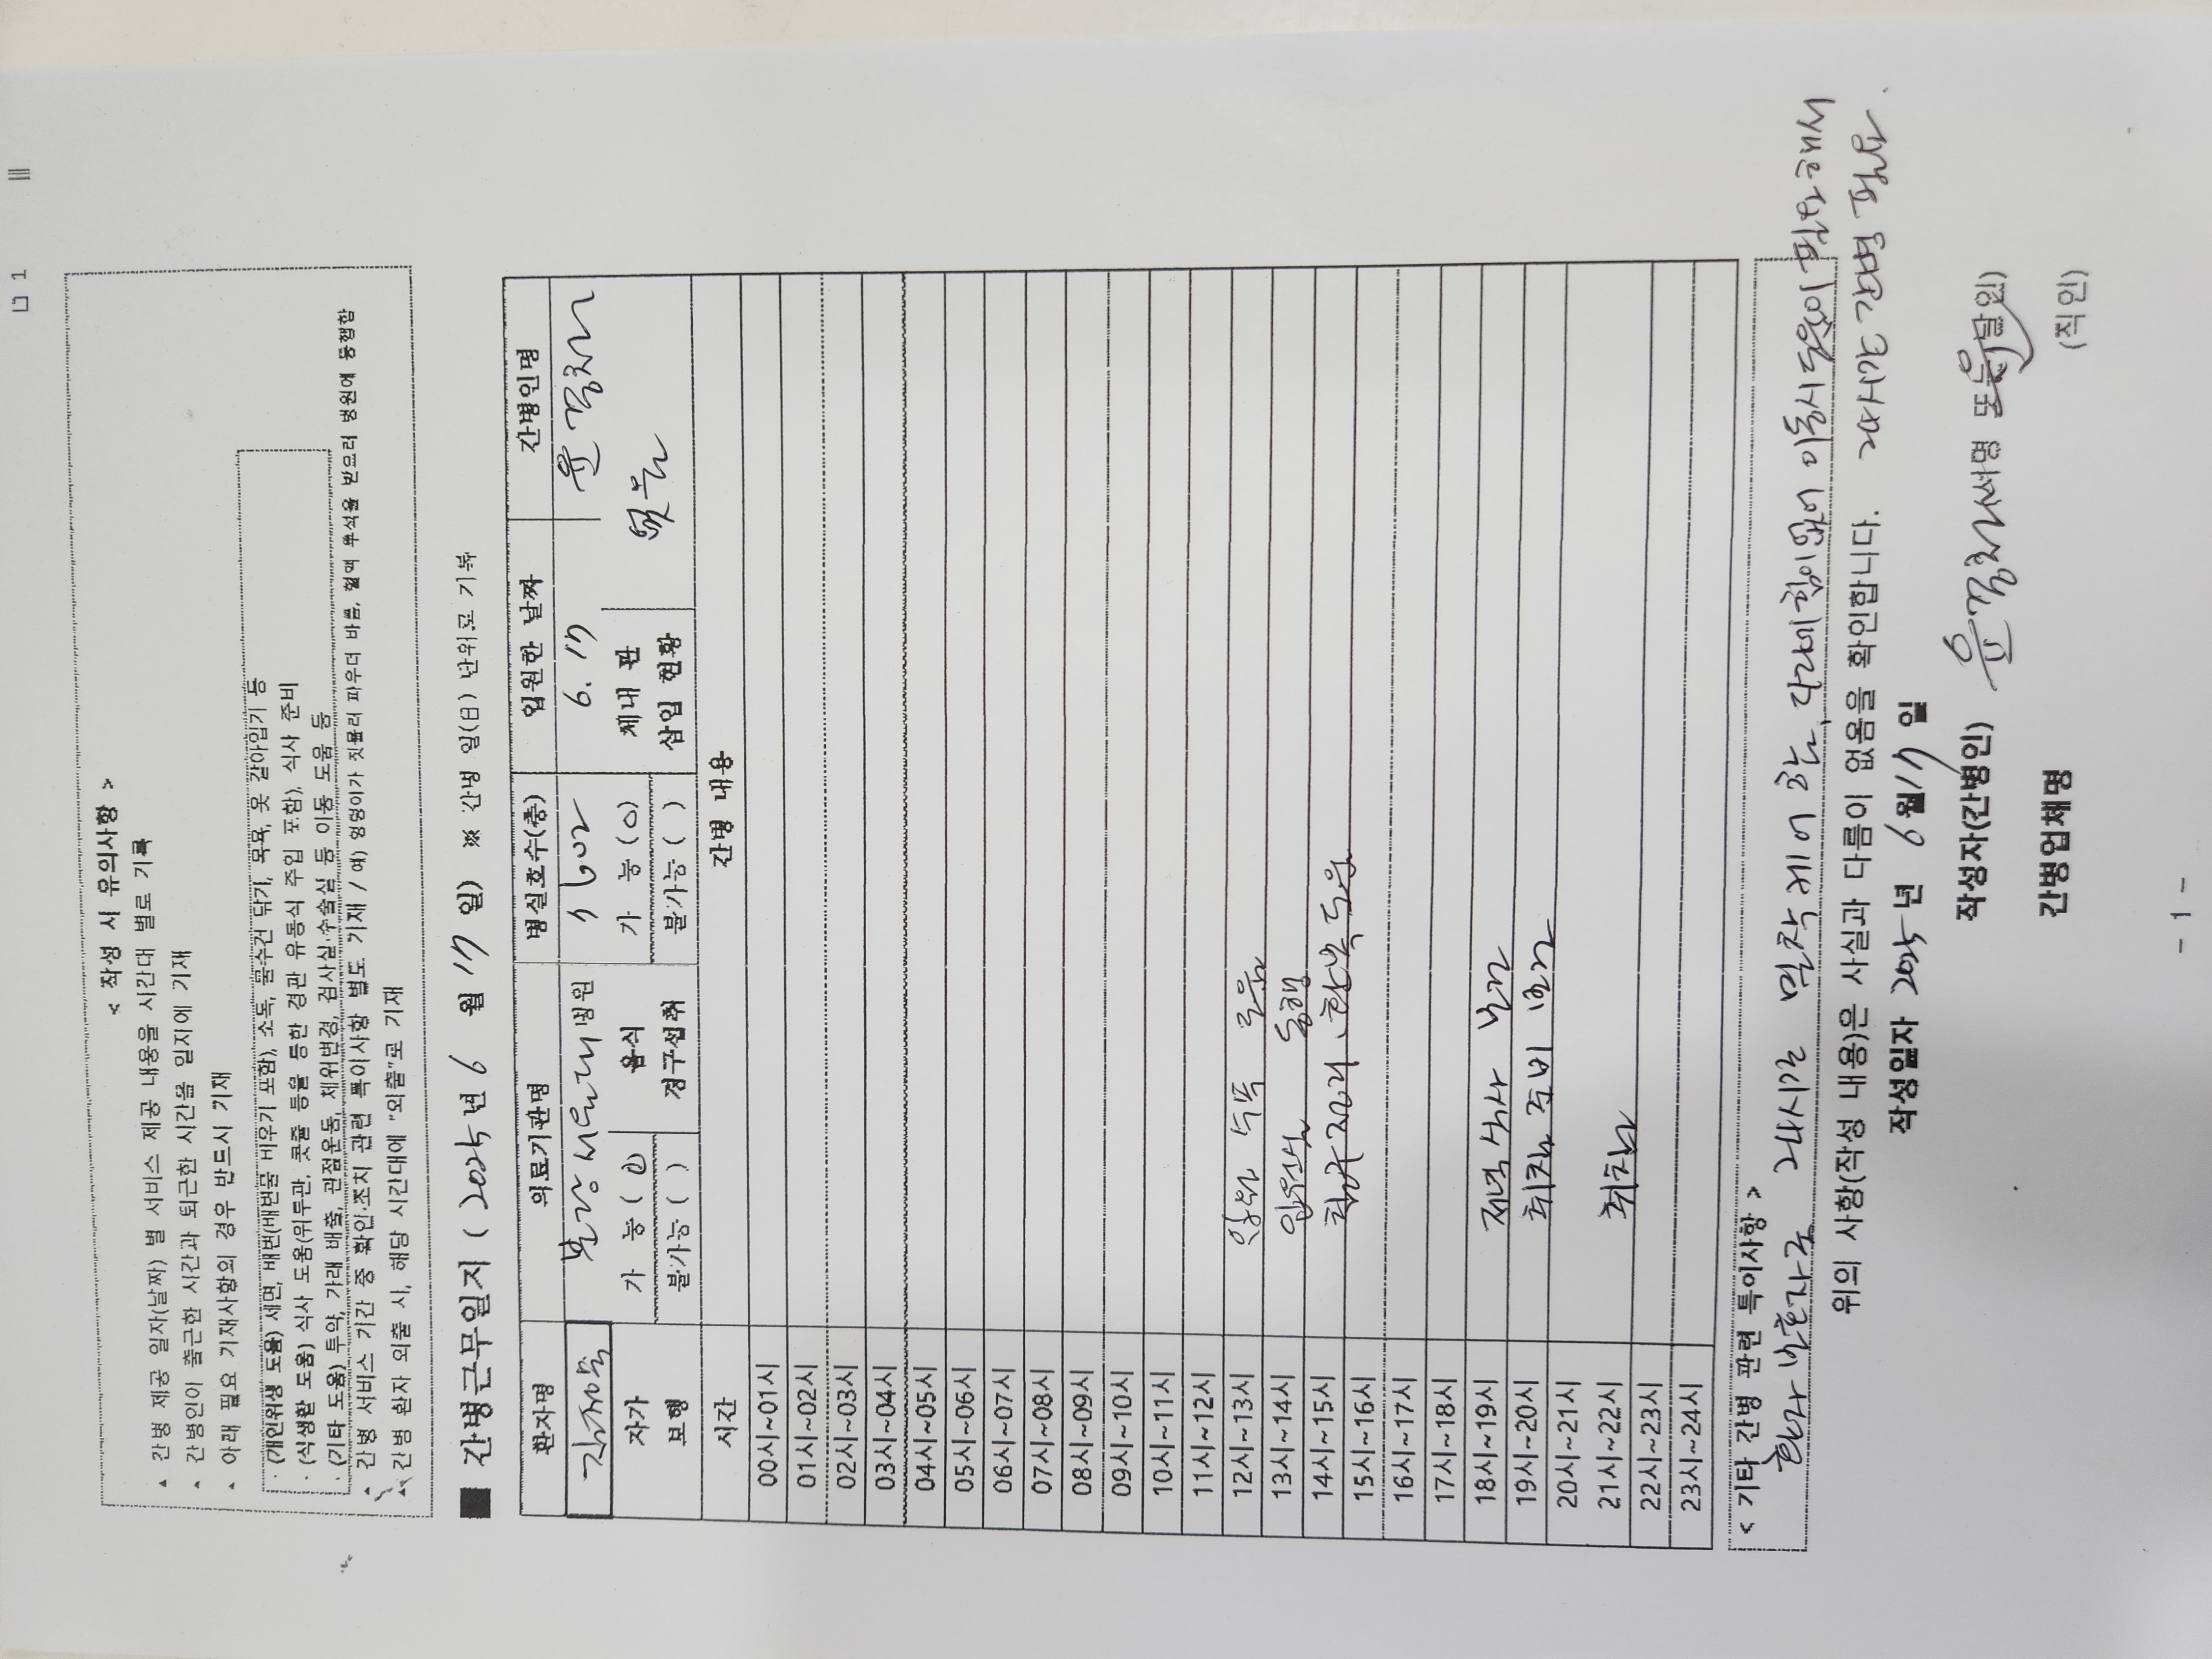 < 작성 시 유의사항 >
▲ 간병 제공 일자(날짜) 별 서비스 제공 내용을 시간대 별로 기록
▲ 간병인이 출근한 시간과 퇴근한 시간을 일지에 기재
▲ 아래 필요 기재사항의 경우 반드시 기재
· (개인위생 도움) 세면, 배변(배변물 비우기 포함), 소독, 물수건 닦기, 목욕, 옷 갈아입기 등
· (식생활 도움) 식사 도움(위루관, 콧줄 등을 통한 경관 유동식 주입 포함), 식사 준비
· (기타 도움) 투약, 가래 배출, 관절운동, 체위변경, 검사실·수술실 등 이동 도움 등
▲ 간병 서비스 기간 중 확인·조치 관련 특이사항 별도 기재 / 예) 엉덩이가 짓물러 파우더 바름, 혈액 투석을 받으러 병원에 동행함
▲ 간병 환자 외출 시, 해당 시간대에 "외출"로 기재
■ 간병근무일지 ( 2025년 6 월 17 일) ※ 간병 일(日) 단위로 기록
환자명 의료기관명 병실호수(층) 입원한 날짜 간병인명
병원 602 6. 17 윤길자
자가 보행 가 능 ( 0 ) 불가능 ( ) 음식 경구섭취 가 능 ( 0 ) 불가능 ( ) 체내 관 삽입 현황 없음
시간 간병 내용
00시~01시
01시~02시
02시~03시
03시~04시
04시~05시
05시~06시
06시~07시
07시~08시
08시~09시
09시~10시
10시~11시
11시~12시
12시~13시 입원 수속 도움
13시~14시 동행
14시~15시 환복 도움
15시~16시
16시~17시
17시~18시
18시~19시 저녁 식사
19시~20시 취침 준비
20시~21시
21시~22시 취침
22시~23시
23시~24시
< 기타 간병 관련 특이사항 >
24시간 밀착 케어 다리에 힘이 없어 이동시 도움이 필요해서
24시간 간병 필요.
위의 사항(작성 내용)은 사실과 다름이 없음을 확인합니다.
작성일자 2025년 6월 17일
작성자(간병인) 윤길자 (서명 또는 날인)
간병업체명 (직인)
- 1 -